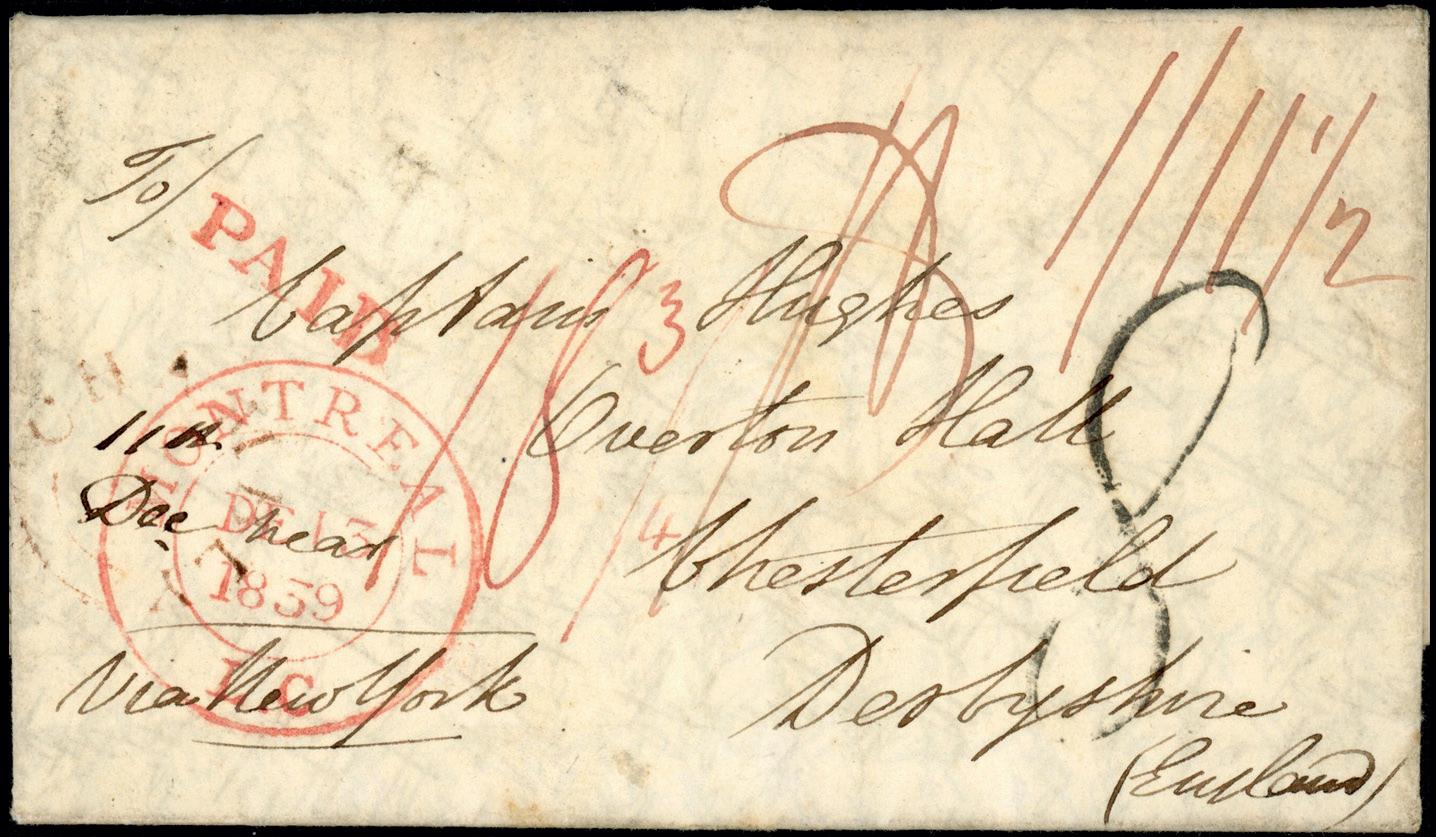 To/
PAID
Captain Hughes
1/8 3
Overton Hall
11th
Dec near
MONTREAL
DE 13
1839
L C
4
Chesterfield
Via New York
Derbyshire
(England)
8
1/2